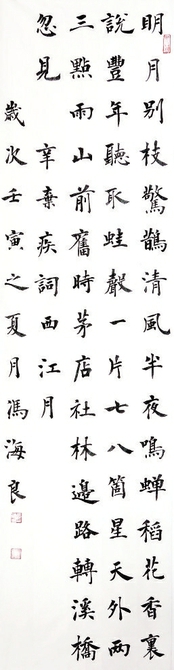 明月别枝驚鵲清風半夜鳴蟬稻花香裏
說豐年聽取蛙聲一片七八箇星天外兩
三點雨山前舊時茅店社林邊路轉溪橋
忽見 辛棄疾詞西江月
歲次壬寅之夏月馮海良